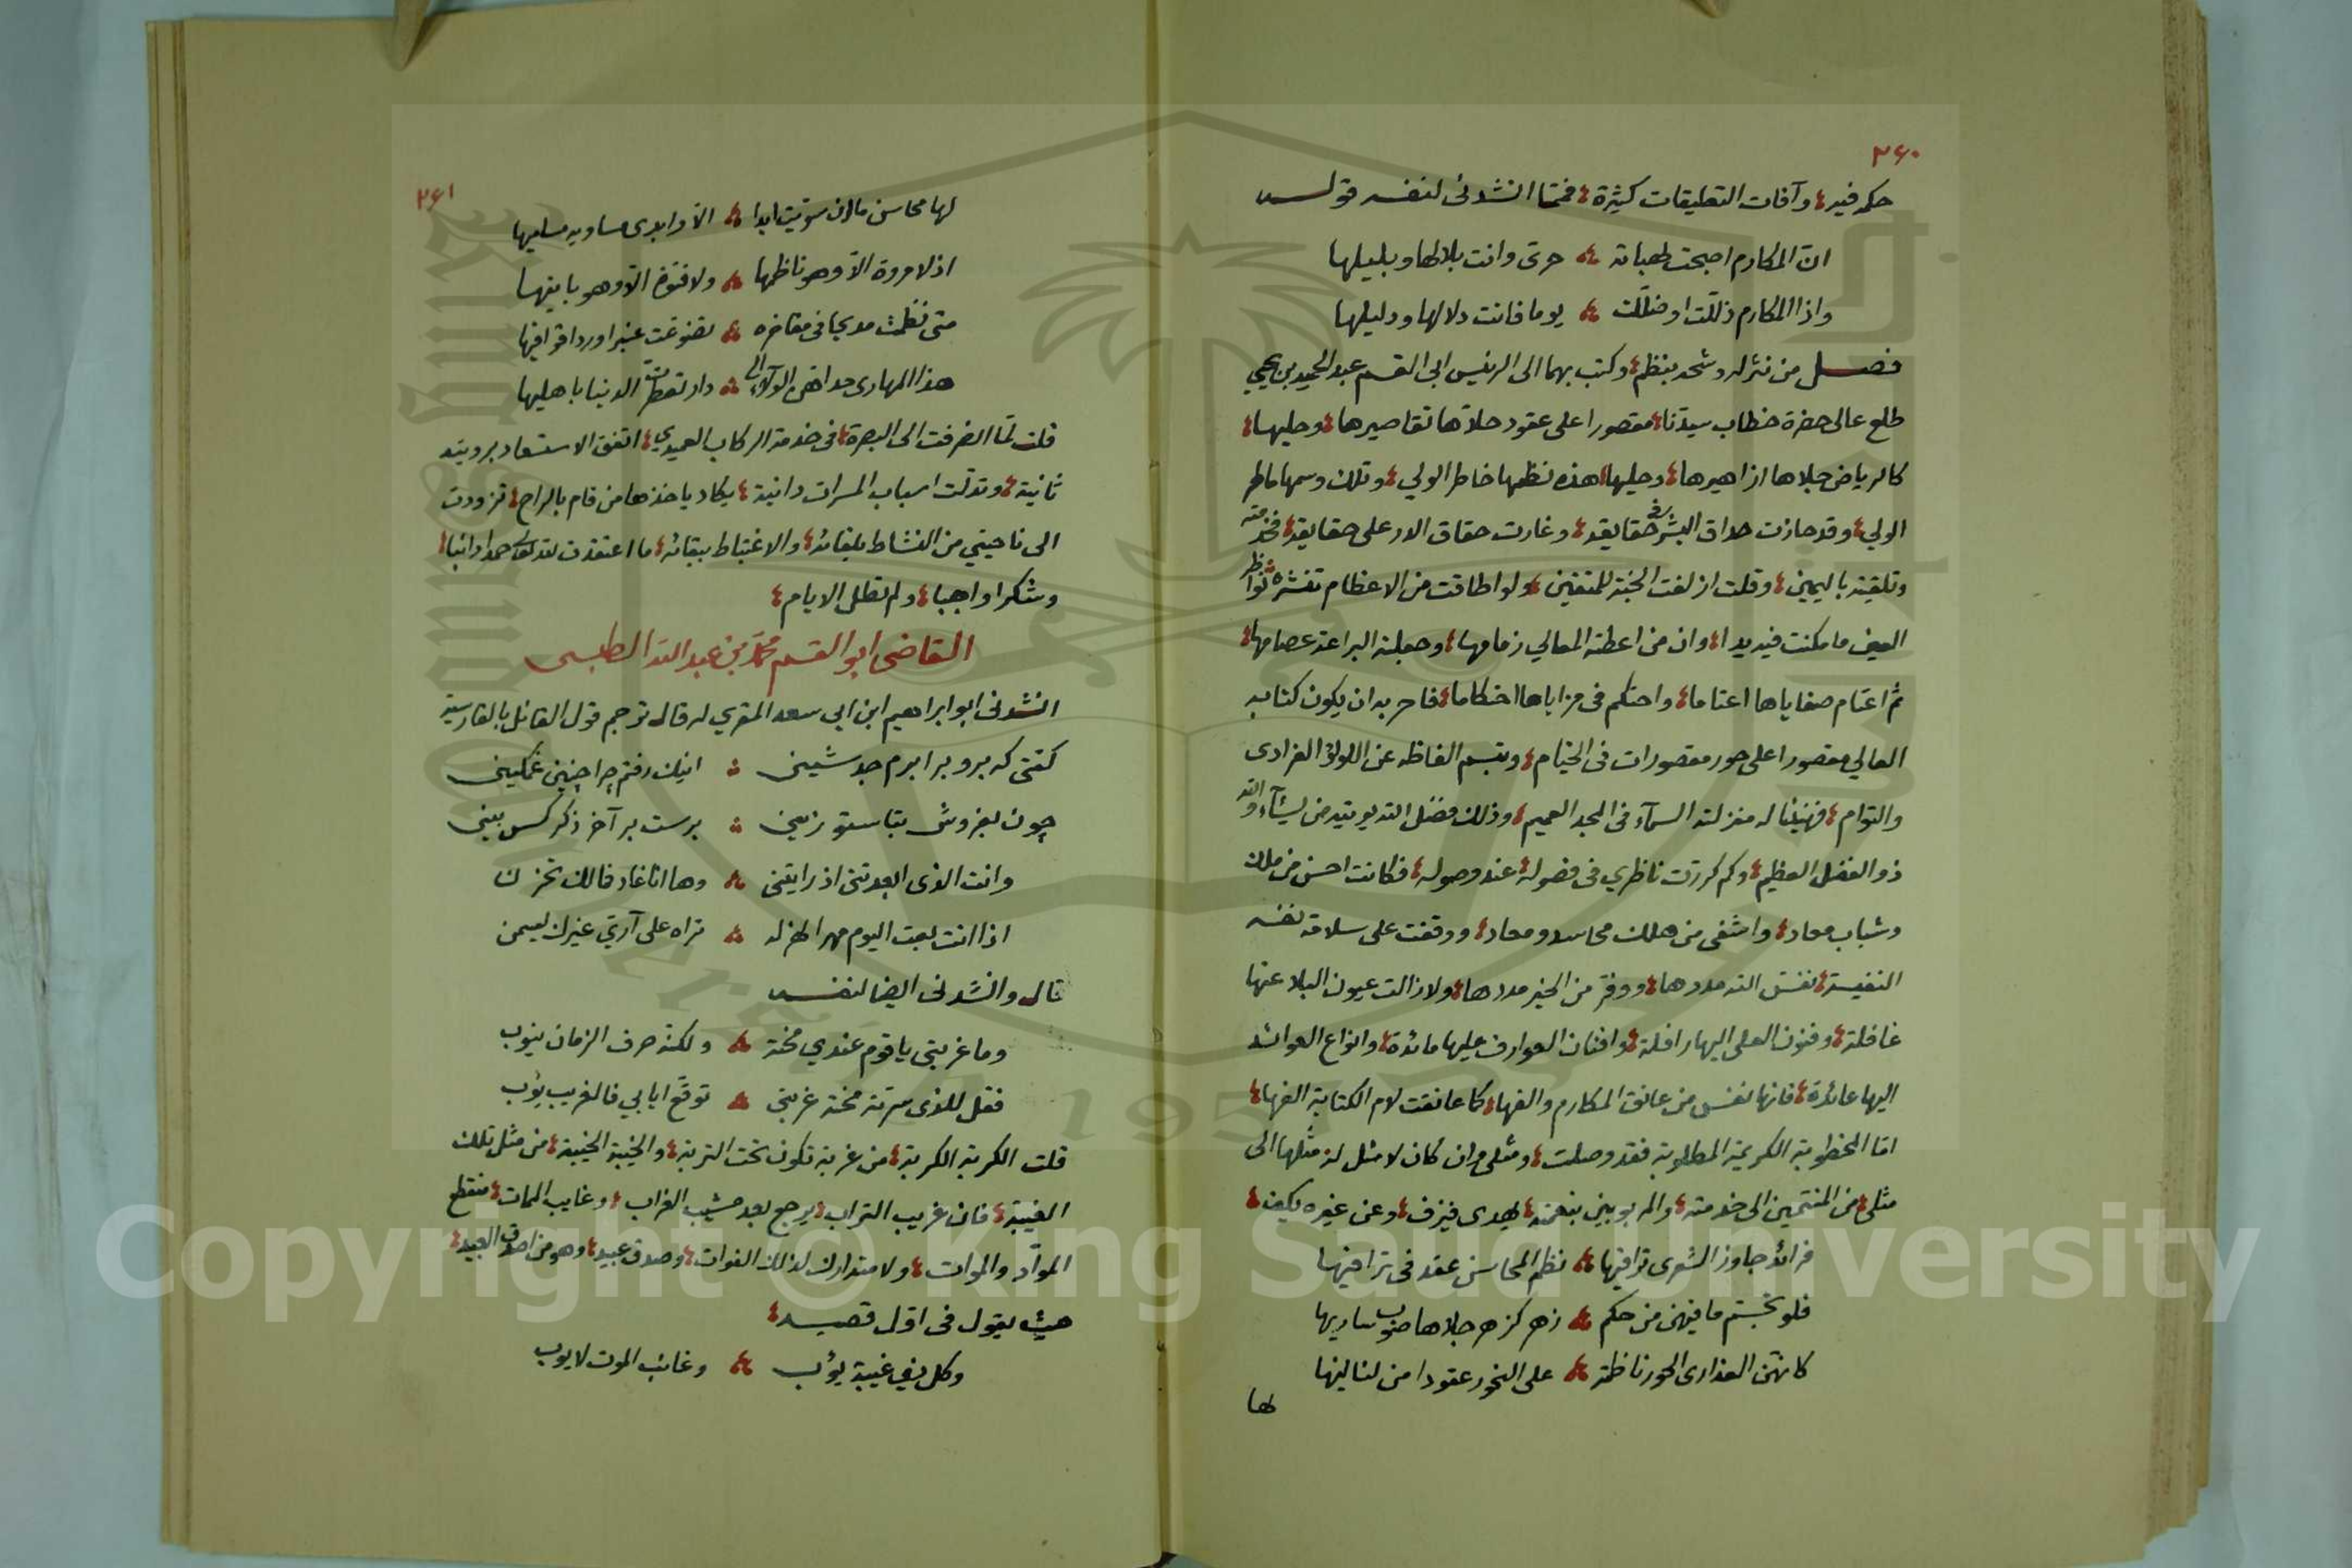 ٢٦٠
حكمه فيه وآفات التعليقات كثيرة فمما انشدنى لنفسه قوله
ان المكارم اصبحت لهبانة حرى وانت بلالها وبليلها
واذا المكارم ذللت او ضللت يوما فانت دلالها ودليلها
فصل من نثر له وشحه بنظم وكتب بهما الى الرئيس ابى القسم عبد الحميد بن يحيى
طلع عالى حضرة خطاب سيدنا مقصورا على عقود حلاها تقاصيرها وحليها
كالرياض جلاها ازاهيرها وحليها هذه نظمها خاطر الولي وتلك وسمها ماطر
الولي وقد حازت حداق البشر حقايقه وغارت حقاق الدر على حقايقه فخدمته
وتلقيته باليمين وقلت ازلفت الجنة للمتقين ولو اطاقت من الاعظام تنشره نواظر
العين ما مكنت فيه يدا وان من اعطته المعالي زمامها وجعلته البراعة عصامها
ثم اعتام صفاياها اعتاما واحتكم فى مزاياها احتكاما فاحر به ان يكون كتابه
العالي مقصورا على حور مقصورات فى الخيام وتبسم الفاظه عن اللولؤ الفرادى
والتوام فهنيئا له منزلته السمآء فى المجد العميم وذلك فضل الله يوتيه من يشآء والله
ذو الفضل العظيم وكم كررت ناظري فى فصوله عند وصوله فكانت احسن من ملك
وشباب معاد واشفى من هلك محاسد ومعاد ووقفت على سلامة نفسه
النفيسة نفس الله مددها ووفر من الخير مددها ولا زالت عيون البلا عنها
غافلة وفنون العلى اليها رافلة وافنان العوارف عليها مائدة وانواع العوائد
اليها عائدة فانها نفس من عانق المكارم والفها كما عانقت لام الكتابة الفها
اما المخطوبة الكريمة المطلوبة فقد وصلت ومثلى وان كان لا مثل له مثلها الى
مثلى من المنتمين الى خدمته والمربوبين بنعمته يهدى فيزف وعن غيره يكف
فرائد جاوز الشعرى تراقيها نظم المحاسن عقد فى تراقيها
فلو تجسم ما فيهن من حكم زهر كزهر جلاها صوب ساريها
كانهن العذارى الحور ناظمة على النحور عقودا من لئاليها
لها
٢٦١
لها محاسن مالان سوتيت ابدا الا وابدى مساويه مسليها
اذ لا مروة الا وهو ناظمها ولا فتوة الا وهو بانيها
متى نظمت مديحا فى مفاخره تضوعت عنبرا وردا قوافيها
هذا المهارى حداهن الولآء الى دار تعطرت الدنيا باهليها
قلت لما انصرفت الى البصرة فى خدمة الركاب العميدي اتفق الاستسعاد برويته
ثانية وتدلت اسباب المسرات دانية يكاد ياخذها من قام بالراح تزودت
الى ناحيتي من النشاط بلقائه والاغتباط ببقائه ما اعتقدت لله تعالى حمدا دائبا
وشكرا واجبا ولم تطل الايام
القاضى ابو القسم محمد بن عبد الله الطبسى
انشدنى ابو ابراهيم ابن ابي سعد المقري له قال ترجم قول القائل بالفارسية
كفتى كه برو برابرم جه شينى اينك رفتم چرا چنين غمكينى
چون بفروشى بتا ستور زين برست بر آخر ذكر كس بينى
وانت الذى ابعدتنى اذ رايتنى وها انا غاد فالك تحزن
اذا انت بعت اليوم مهرا لهزله تراه على آري غيرك يسمن
قال وانشدنى ايضا لنفسه
وما غربتى يا قوم عندي محنة ولكنه صرف الزمان ينوب
فقل للذى سرته محنة غربتي توقع ايابي فالغريب يؤب
قلت الكربة الكربة من غربة تكون تحت التربة والخيبة الخيبة من مثل تلك
الغيبة فان غريب التراب يرجع بعد مشيب الغراب وغايب الممات منقطع
المواد والموات ولا متدارك لذلك الفوات وصدق عبيد وهو من اصدق العبيد
حيث يقول فى اول قصيده
وكل ذي غيبة يؤب وغائب الموت لا يوب